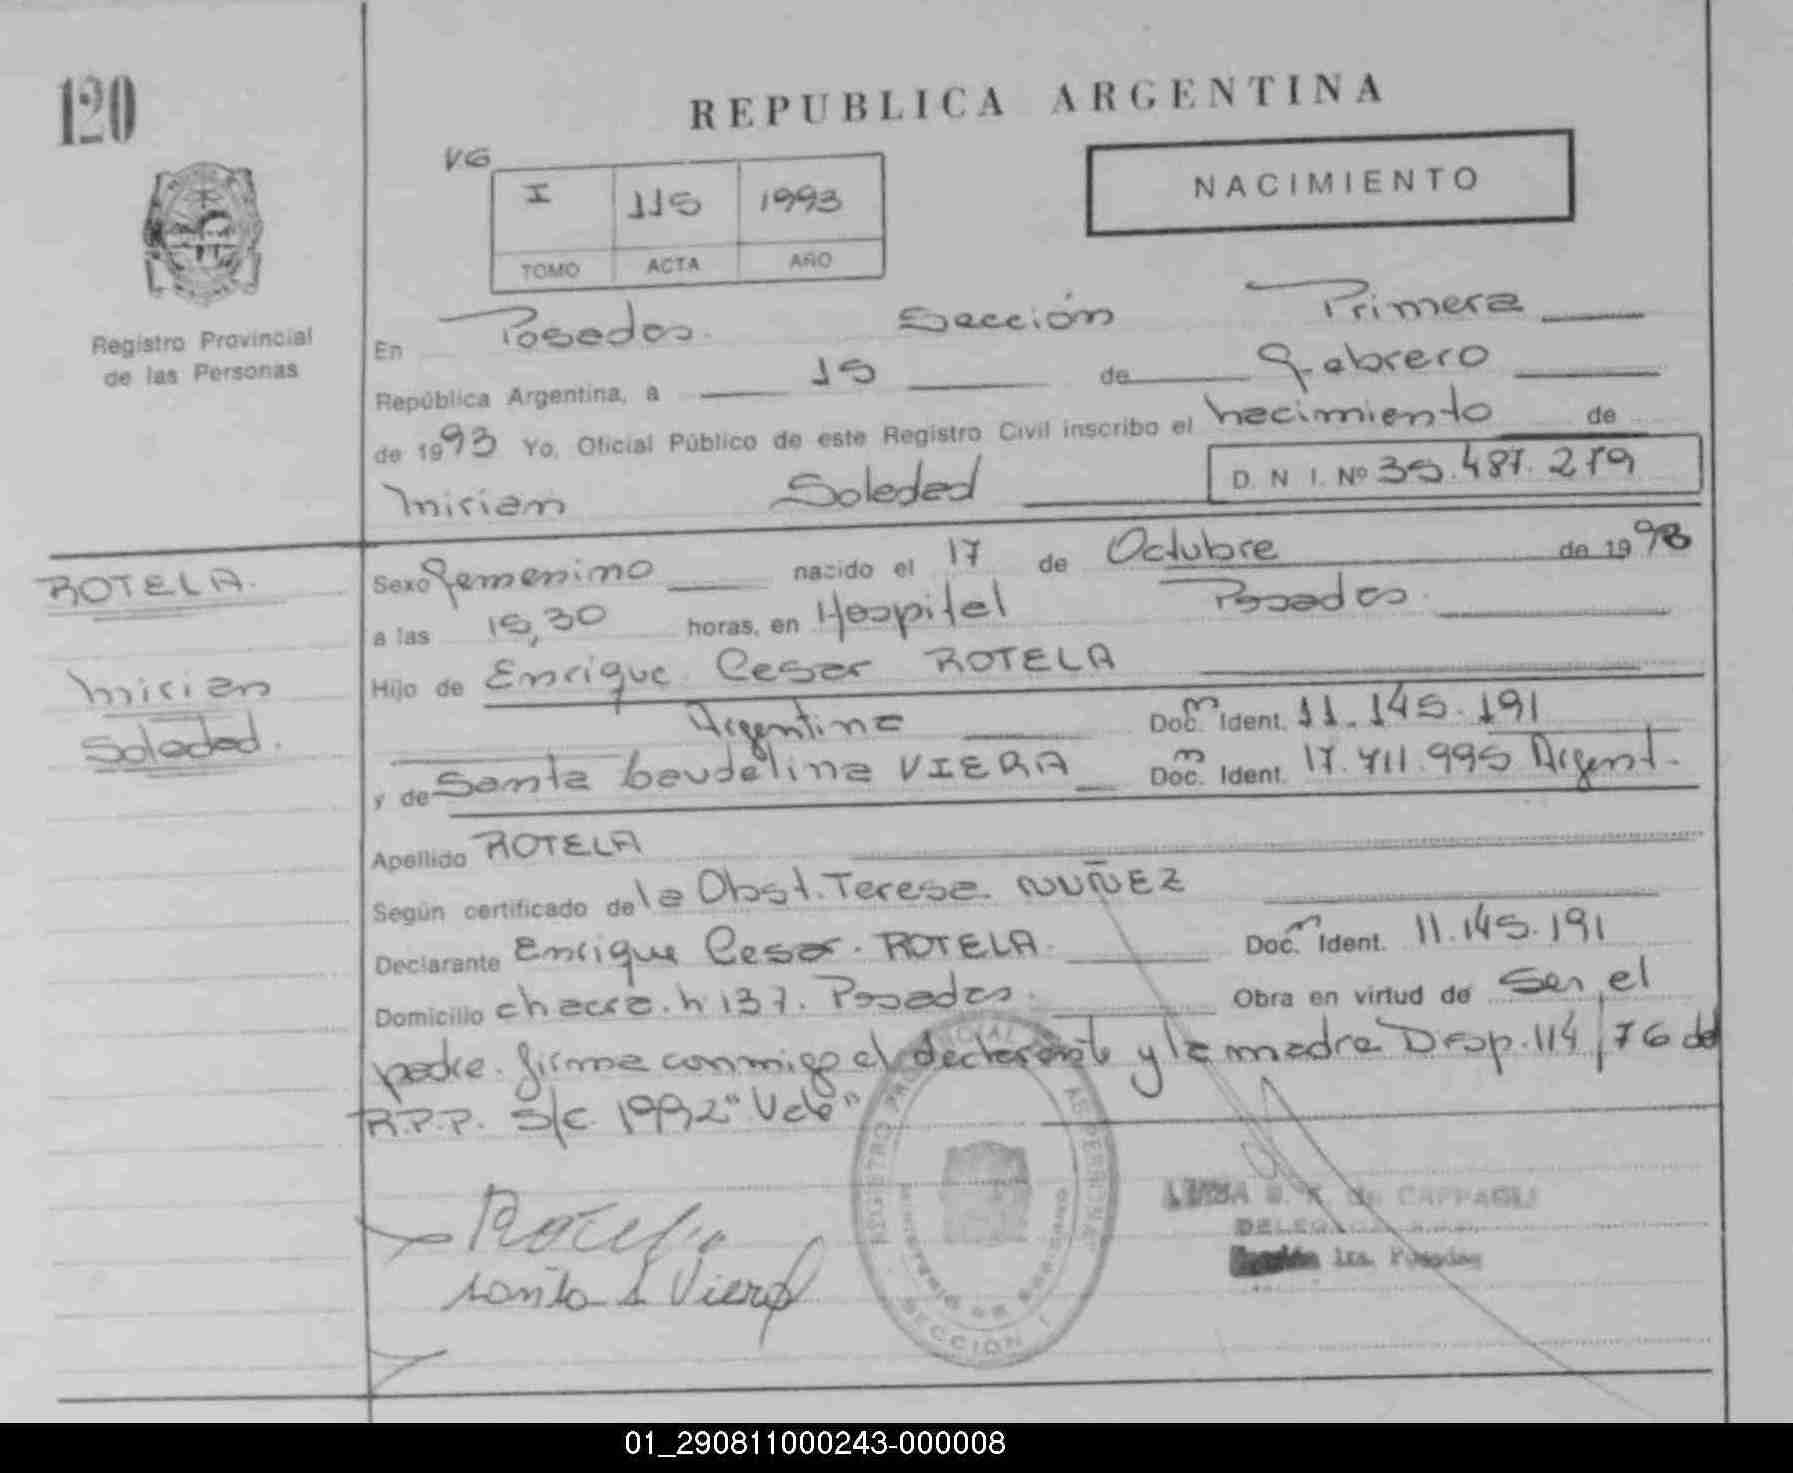 120
REPUBLICA ARGENTINA
VG
I 115 1993
TOMO ACTA AÑO
NACIMIENTO
Registro Provincial
de las Personas
En Posadas. Sección Primera
República Argentina, a 15 de Febrero
de 1993 Yo, Oficial Público de este Registro Civil inscribo el nacimiento de
Mirian Soledad D. N. I. Nº 35.487.279
ROTELA.
Mirian
Soledad.
Sexo femenino nacido el 17 de Octubre de 19
a las 15,30 horas, en Hospital Posadas.
Hijo de Enrique Cesar ROTELA
Argentina Doc. Ident. 11.145.191
y de Santa Gaudelina VIERA Doc. Ident. 17.711.995 Argent.
Apellido ROTELA
Según certificado de la Obst. Teresa NUÑEZ
Declarante Enrique Cesar. ROTELA. Doc. Ident. 11.145.191
Domicilio chacra. n 137. Posadas. Obra en virtud de ser el
padre. firma conmigo el declarante y la madre Disp. 114/76 del
R.P.P. S/C. 1992 "Vale"
Rotela
Santa G Viera
REGISTRO PROVINCIAL DE LAS PERSONAS
MINISTERIO DE GOBIERNO
SECCION I
de CAPPAGLI
1ra. Posadas
01_290811000243-000008